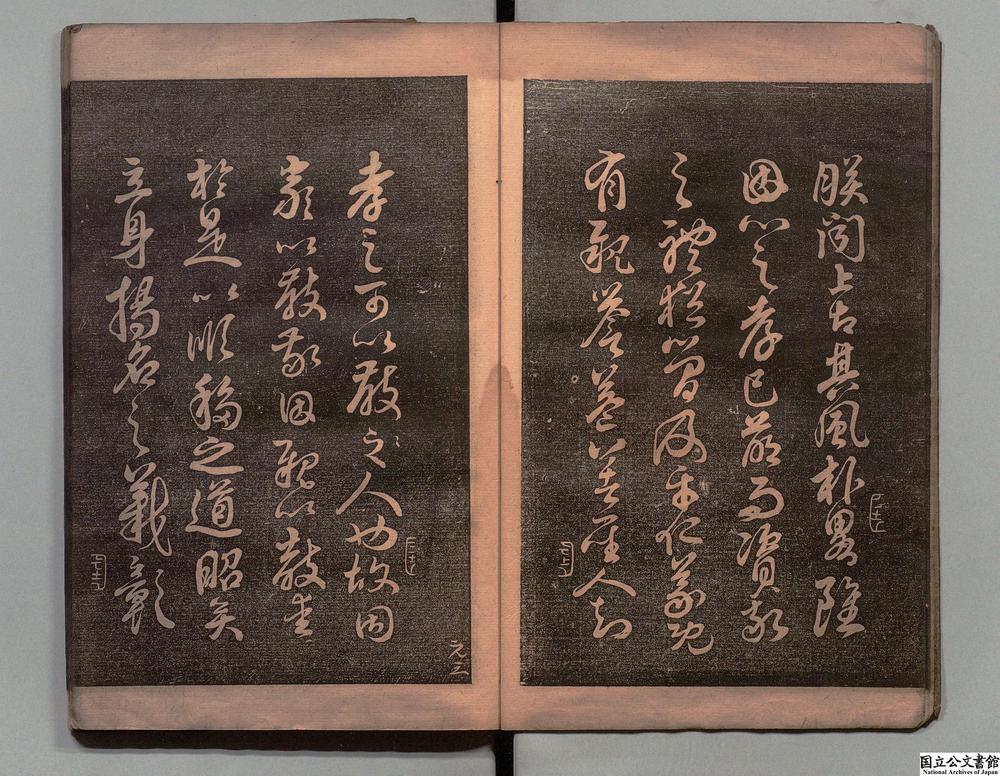 朕聞上古其風朴畧雖
因心之孝已萌而資敬
之禮猶簡及乎仁義既
有親譽益著聖人知
孝之可以教之人也故因
嚴以教敬因親以教愛
於是以順移之道昭矣
立身揚名之義彰
元三
国立公文書館
National Archives of Japan